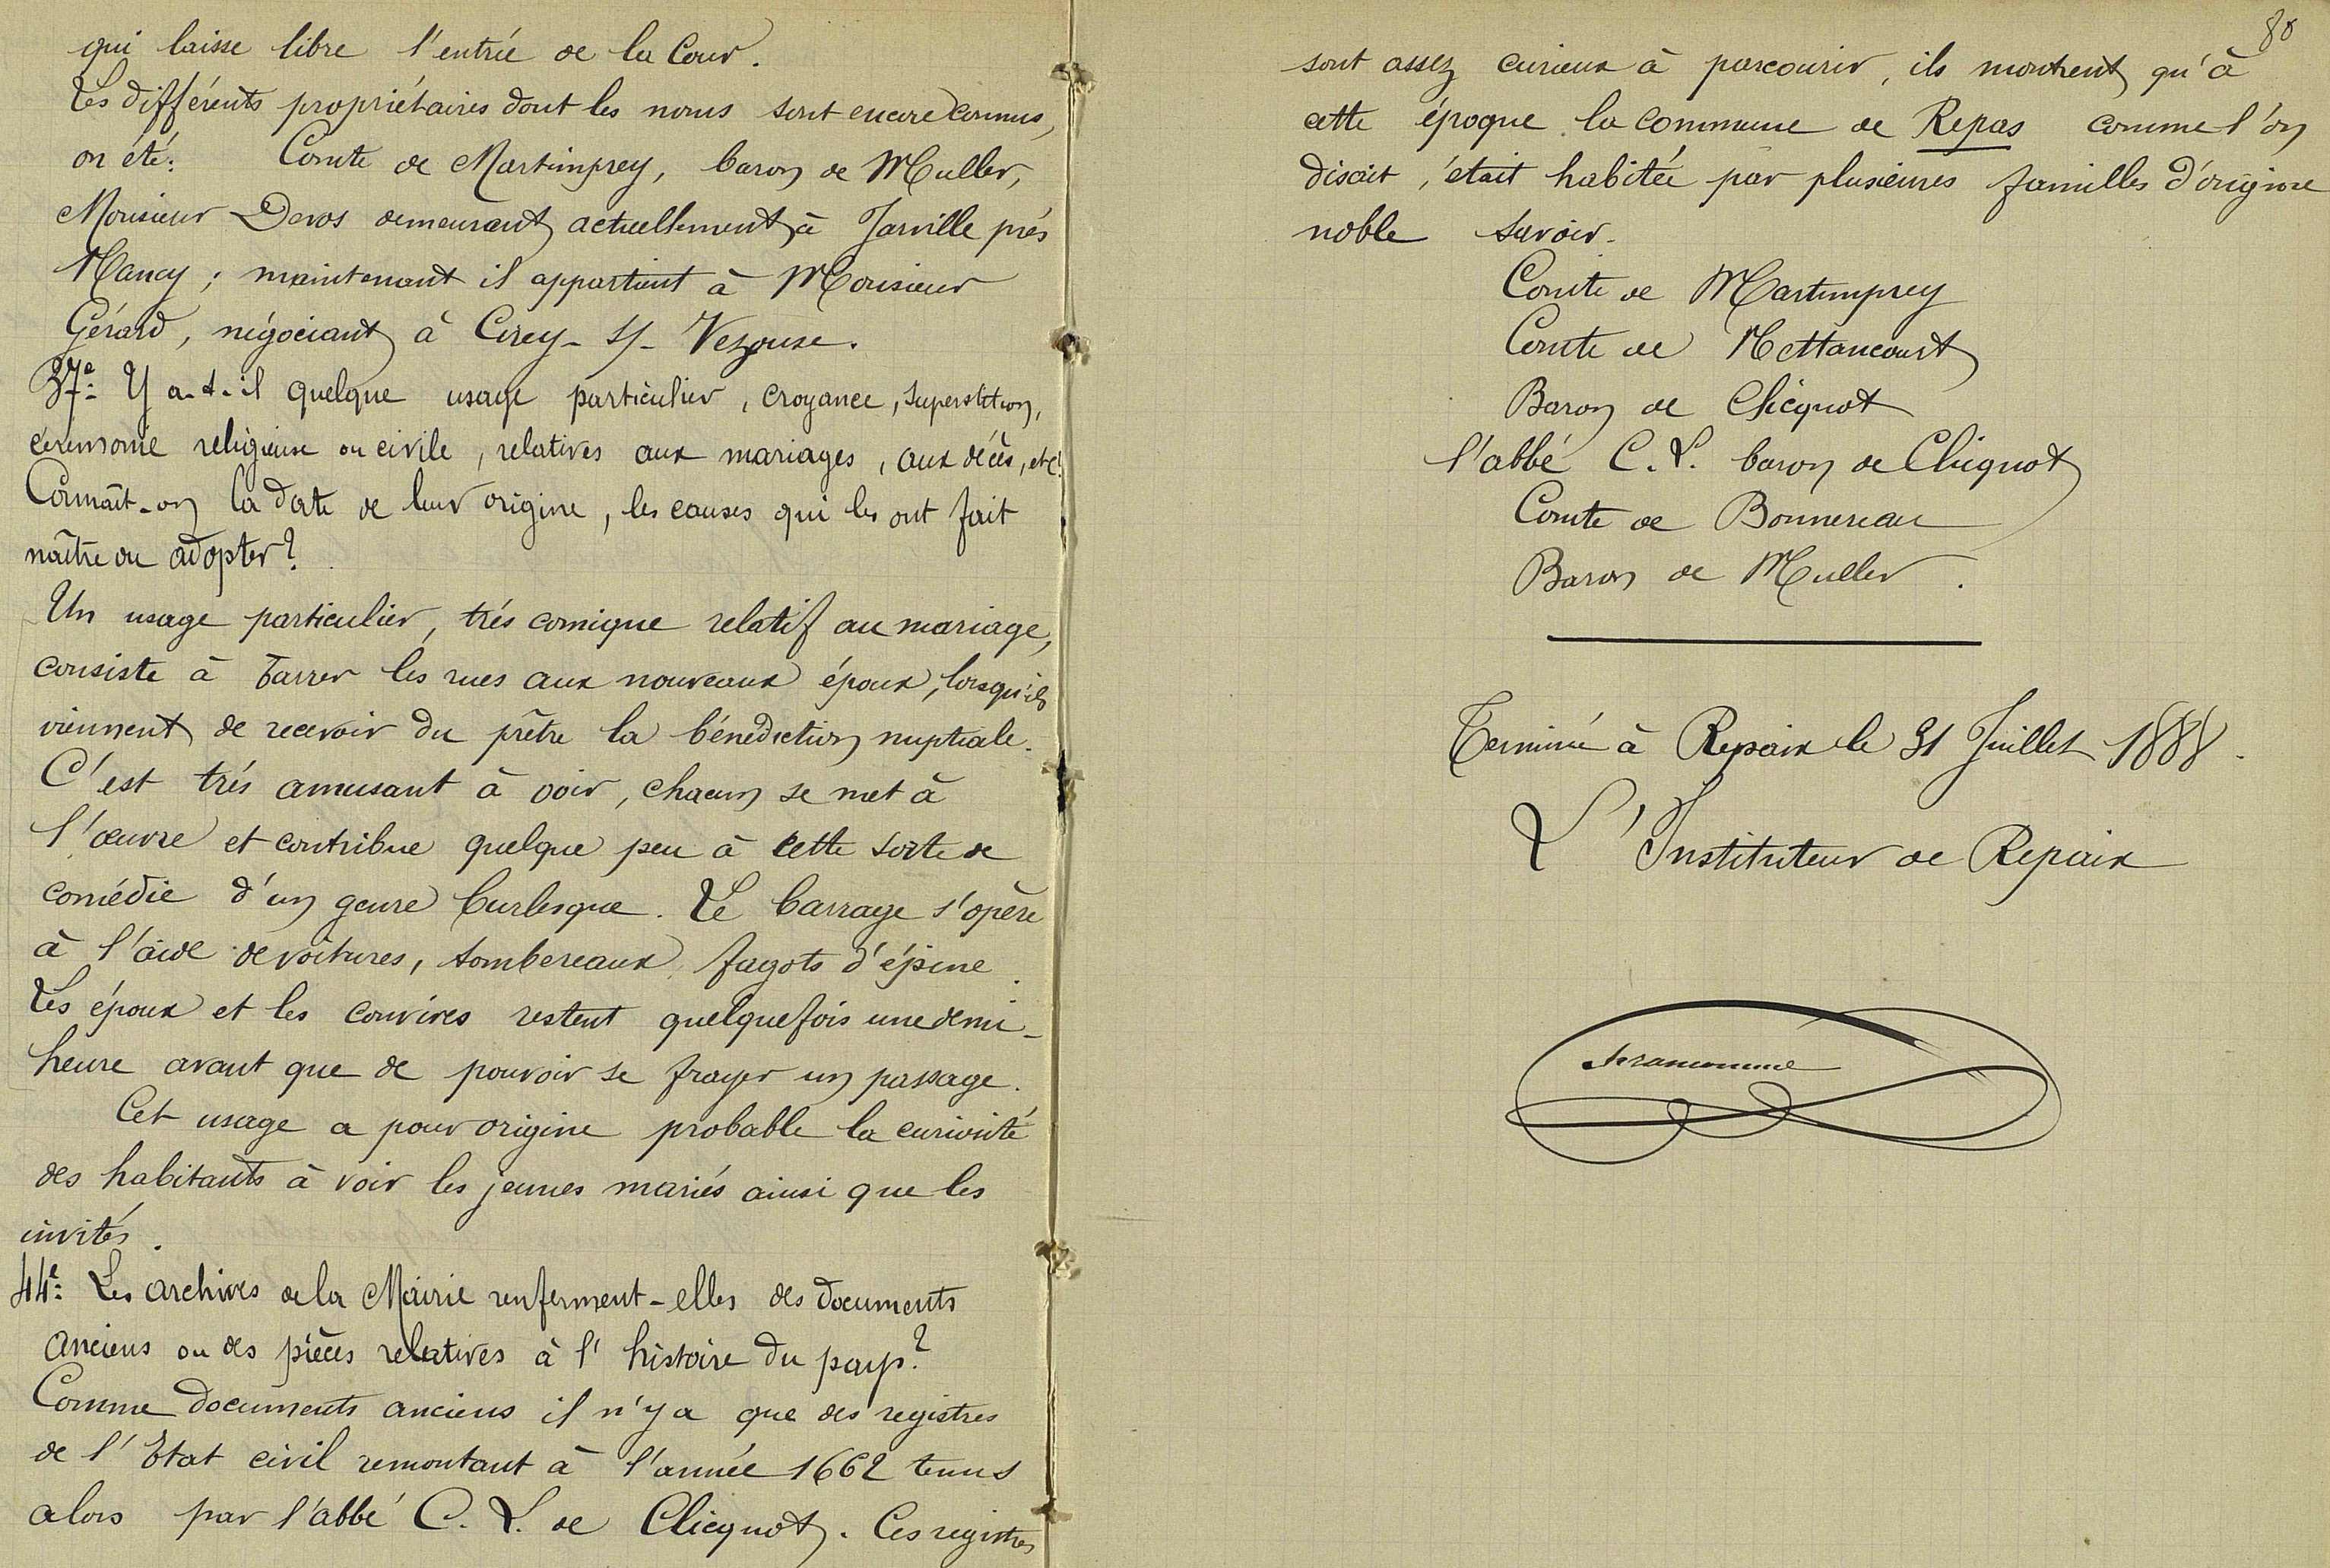 qui laisse libre l'entrée de la Cour.
Les différents propriétaires dont les noms sont encore connus,
on été: Comte de Martimprey, baron de Muller,
Monsieur Devos demeurant actuellement à Jarville près
Nancy; maintenant il appartient à Monsieur
Gérard, négociant à Cirey-s/-Vezouse.
37e: Y a-t-il quelque usage particulier, croyance, superstition,
cérémonie religieuse ou civile, relatives aux mariages, aux décès, etc!
Connaît-on la date de leur origine, les causes qui les ont fait
naître ou adopter?
Un usage particulier, très comique relatif au mariage,
consiste à barrer les rues aux nouveaux époux, lorsqu'ils
viennent de recevoir du prêtre la bénédiction nuptiale.
C'est très amusant à voir, chacun se met à
l'œuvre et contribue quelque peu à cette sorte de
comédie d'un genre burlesque. Le barrage s'opère
à l'aide de voitures, tombereaux, fagots d'épine.
Les époux et les convives restent quelquefois une demi-
heure avant que de pouvoir se frayer un passage.
Cet usage a pour origine probable la curiosité
des habitants à voir les jeunes mariés ainsi que les
invités.
44e: Les archives de la Mairie renferment-elles des documents
anciens ou des pièces relatives à l'histoire du pays?
Comme documents anciens il n'y a que des registres
de l'Etat civil remontant à l'année 1662 tenus
alors par l'abbé C. L. de Clicquot. Ces registres
80
sont assez curieux à parcourir, ils montrent qu'à
cette époque la commune de Repas comme l'on
disait, était habitée par plusieurs familles d'origine
noble savoir.
Comte de Martimprey
Comte de Nettancourt
Baron de Clicquot
l'abbé C. L. baron de Clicquot
Comte de Bonnereau
Baron de Muller.
Terminé à Repaix le 31 Juillet 1888.
L'Instituteur de Repaix